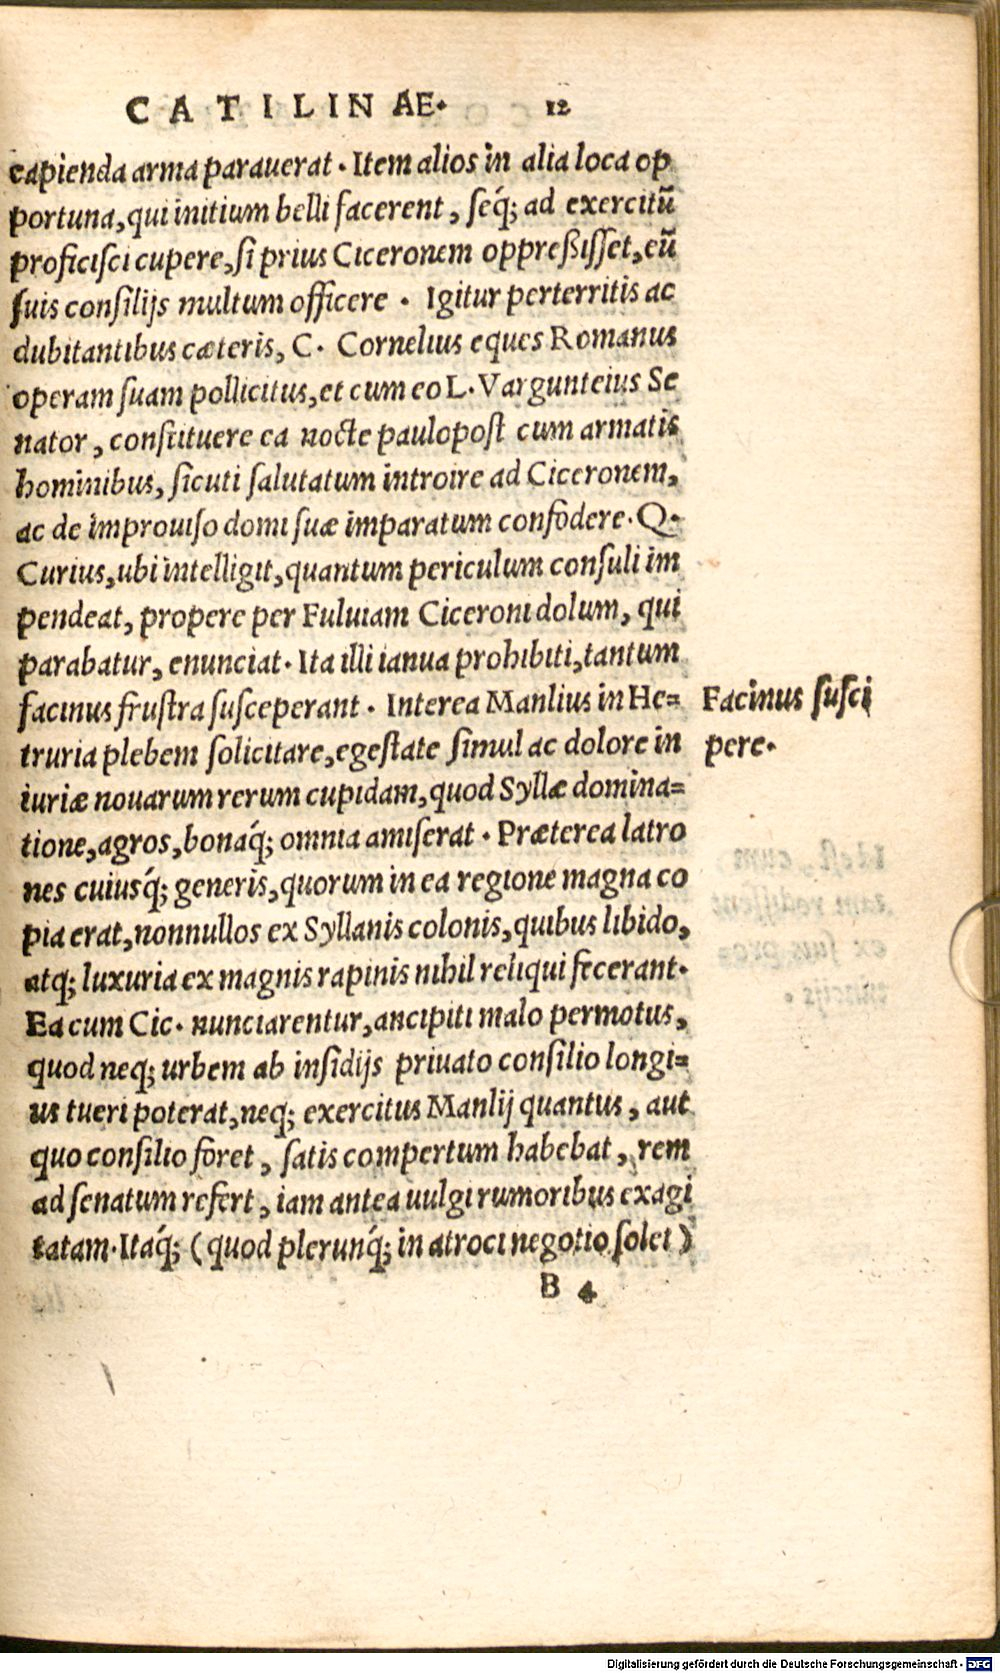 CATILINAE. 12
capienda arma parauerat. Item alios in alia loca op
portuna, qui initium belli facerent, seq́; ad exercitũ
proficisci cupere, si prius Ciceronem oppreßisset, eũ
suis consilijs multum officere. Igitur perterritis ac
dubitantibus cæteris, C. Cornelius eques Romanus
operam suam pollicitus, et cum eo L. Vargunteius Se
nator, constituere ea nocte paulopost cum armatis
hominibus, sicuti salutatum introire ad Ciceronem,
ac de improuiso domi suæ imparatum confodere. Q.
Curius, ubi intelligit, quantum periculum consuli im
pendeat, propere per Fuluiam Ciceroni dolum, qui
parabatur, enunciat. Ita illi ianua prohibiti, tantum
facinus frustra susceperant. Interea Manlius in He=
truria plebem solicitare, egestate simul ac dolore in
iuriæ nouarum rerum cupidam, quod Syllæ domina=
tione, agros, bonaq́; omnia amiserat. Præterea latro
nes cuiusq́; generis, quorum in ea regione magna co
pia erat, nonnullos ex Syllanis colonis, quibus libido,
atq; luxuria ex magnis rapinis nihil reliqui fecerant.
Ea cum Cic. nunciarentur, ancipiti malo permotus,
quod neq; urbem ab insidijs priuato consilio longi=
us tueri poterat, neq; exercitus Manlij quantus, aut
quo consilio foret, satis compertum habebat, rem
ad senatum refert, iam antea uulgi rumoribus exagi
tatam. Itaq́; (quod plerunq́; in atroci negotio solet)
B 4
Facinus susci
pere.
Digitalisierung gefördert durch die Deutsche Forschungsgemeinschaft - DFG